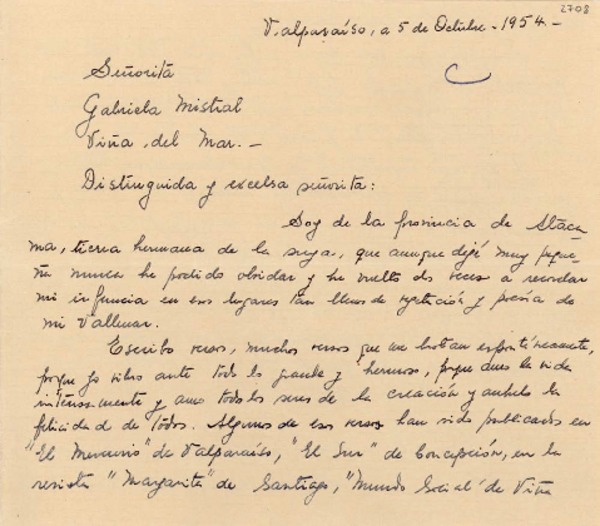 2708
Valparaíso, a 5 de Octubre - 1954 -
Señorita
Gabriela Mistral
Viña del Mar. -
Distinguida y excelsa señorita:
Soy de la provincia de Ataca-
ma, tierra hermana de la suya, que aunque dejé muy peque-
ña nunca he podido olvidar y he vuelto dos veces a recordar
mi infancia en esos lugares tan llenos de vegetación y poesía de
mi Vallenar.
Escribo versos, muchos versos que me brotan espontáneamente,
porque yo vibro ante todo lo grande y hermoso, porque amo la vida
intensamente y amo todos los seres de la creación y anhelo la
felicidad de todos. Algunos de esos versos han sido publicados en
"El Mercurio" de Valparaíso, "El Sur" de Concepción, en la
revista "Margarita" de Santiago, "Mundo Social" de Viña